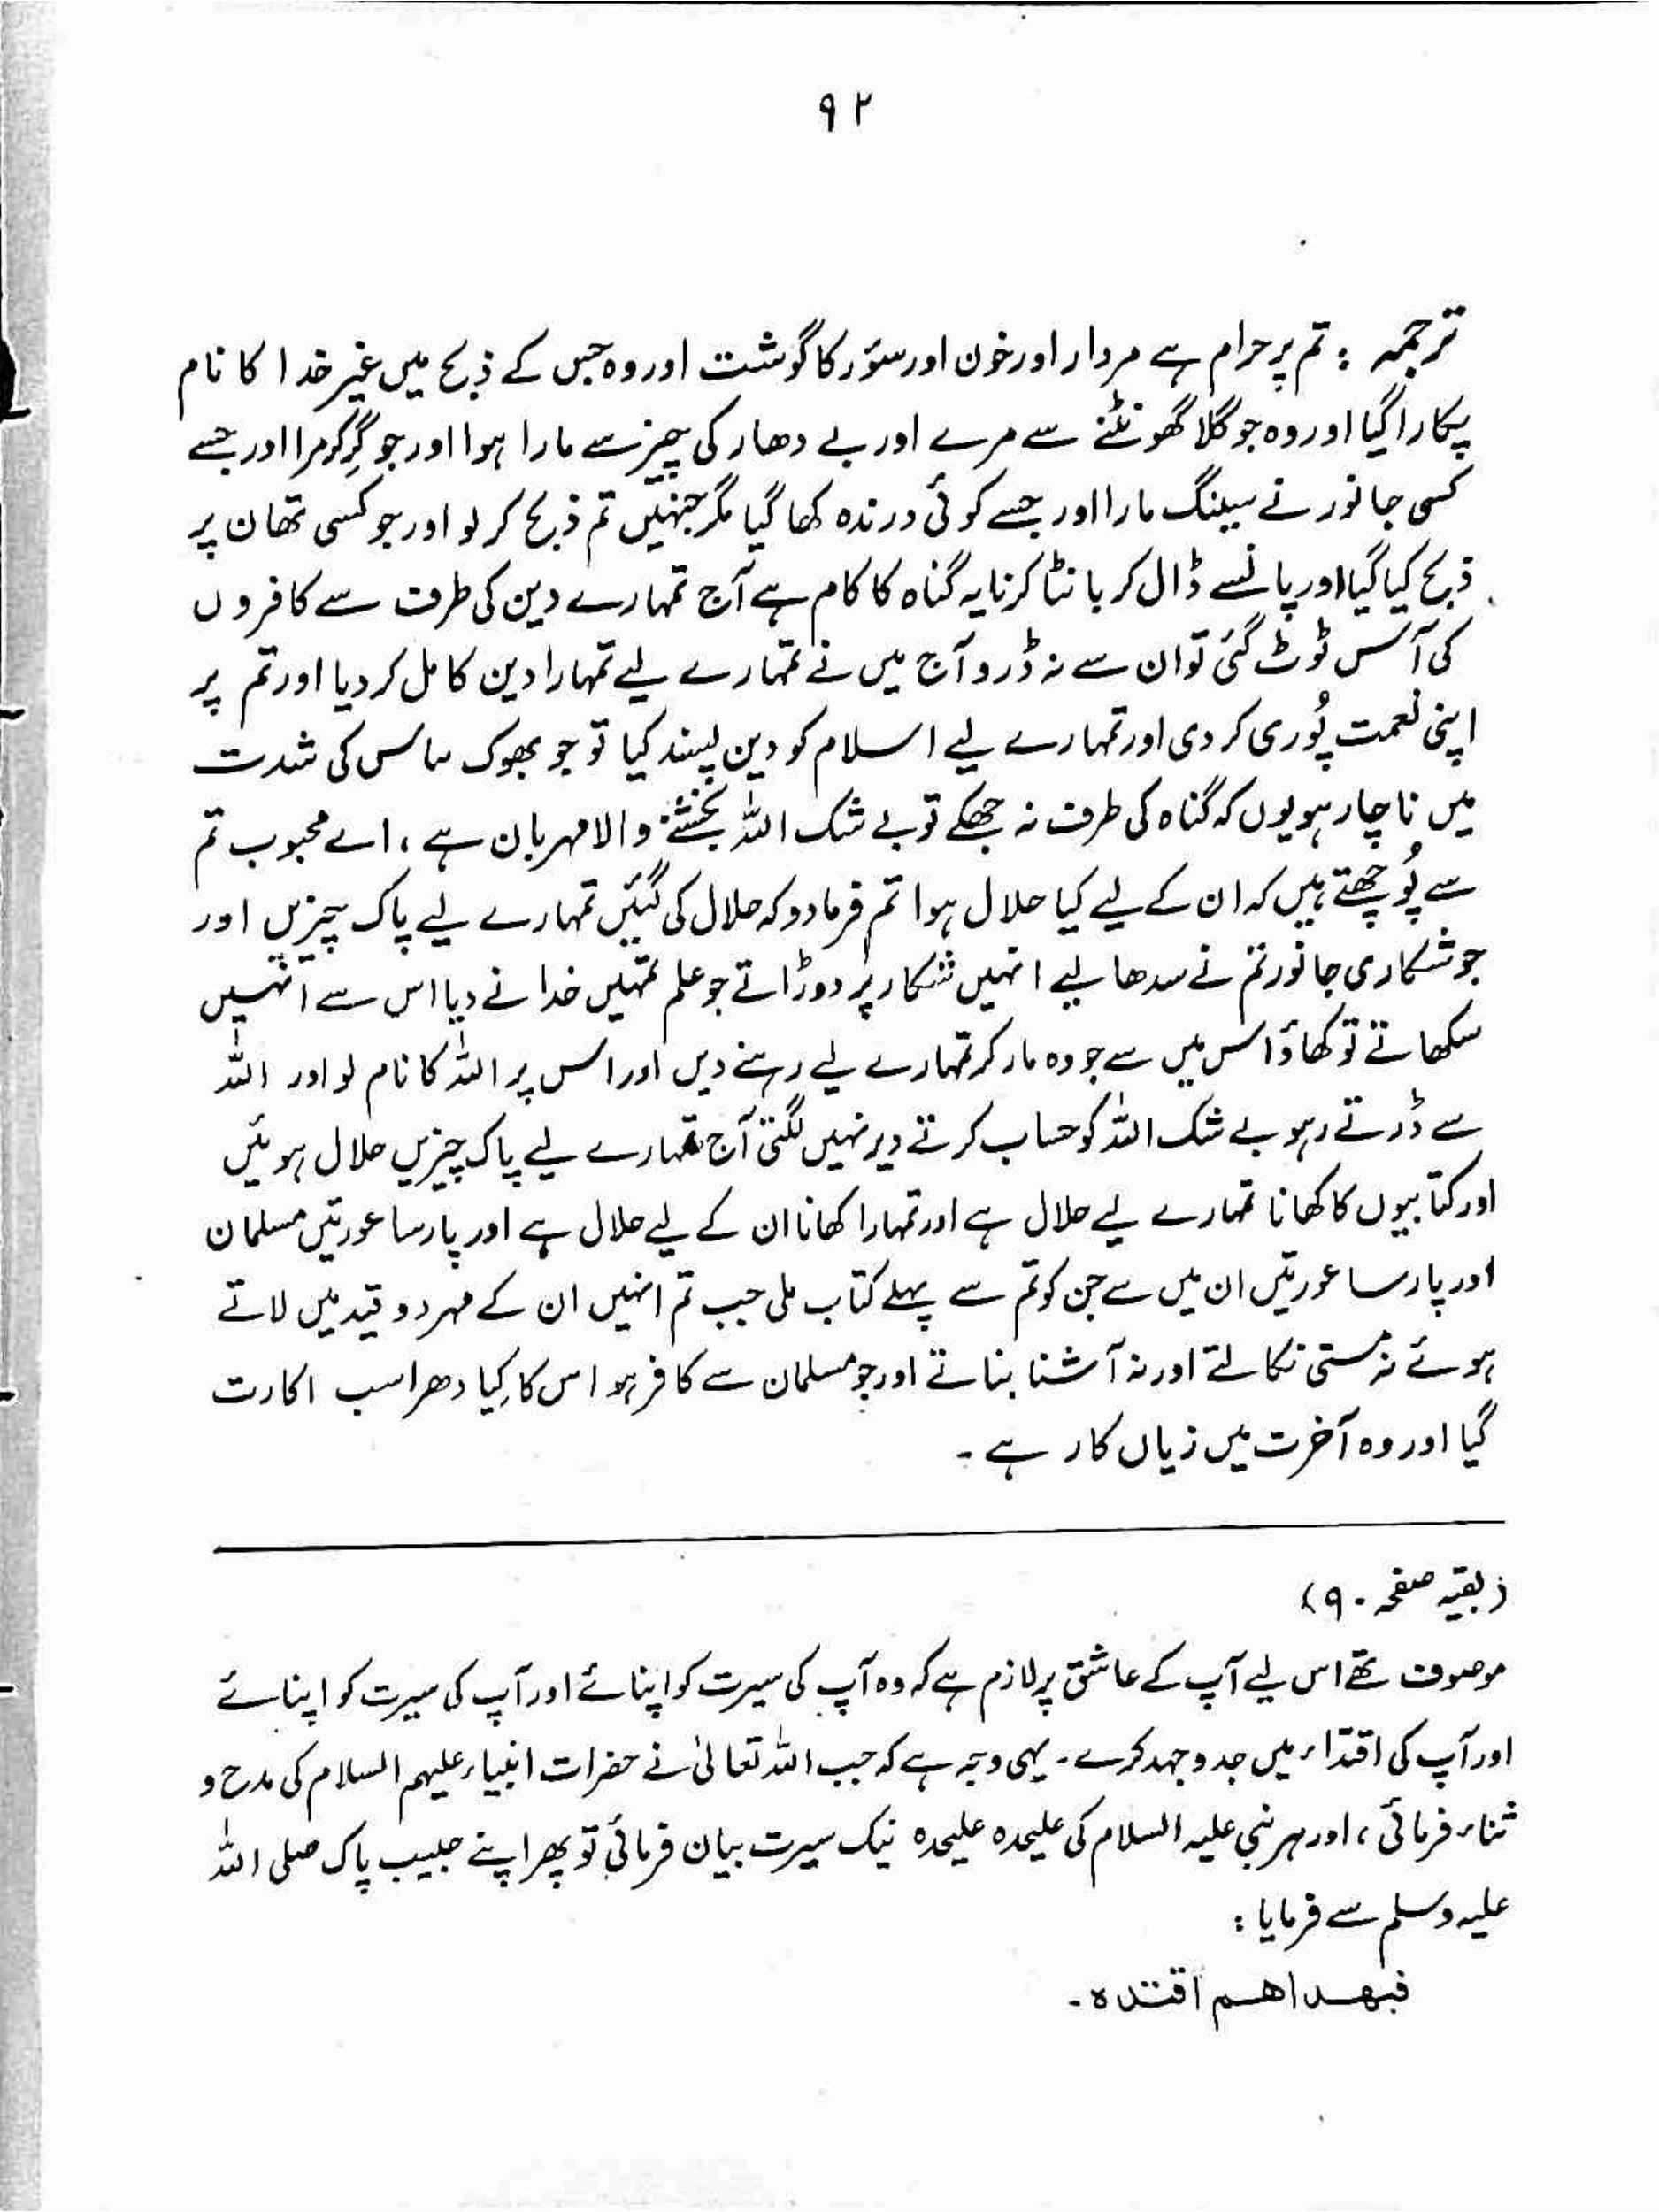 ۹۲
ترجمہ : تم پر حرام ہے مردار اور خون اور سوٗر کا گوشت اور وہ جس کے ذبح میں غیر خدا کا نام
پکارا گیا اور وہ جو گلا گھونٹنے سے مرے اور بے دھار کی چیز سے مارا ہوا اور جو گِر کر مرا اور جسے
کسی جانور نے سینگ مارا اور جسے کوئی درندہ کھا گیا مگر جنہیں تم ذبح کر لو اور جو کسی تھان پر
ذبح کیا گیا اور پانسے ڈال کر بانٹا کرنا یہ گناہ کا کام ہے آج تمہارے دین کی طرف سے کافروں
کی آس ٹوٹ گئی تو ان سے نہ ڈرو آج میں نے تمہارے لیے تمہارا دین کامل کر دیا اور تم پر
اپنی نعمت پُوری کر دی اور تمہارے لیے اسلام کو دین پسند کیا تو جو بھوک کی شدت
میں ناچار ہو یوں کہ گناہ کی طرف نہ جھکے تو بے شک اللہ بخشنے والا مہربان ہے ، اے محبوب تم
سے پُوچھتے ہیں کہ ان کے لیے کیا حلال ہوا تم فرما دو کہ حلال کی گئیں تمہارے لیے پاک چیزیں اور
جو شکاری جانور تم نے سدھا لیے انہیں شکار پر دوڑاتے جو علم تمہیں خدا نے دیا اس سے انہیں
سکھاتے تو کھاؤ اس میں سے جو وہ مار کر تمہارے لیے رہنے دیں اور اس پر اللہ کا نام لو اور اللہ
سے ڈرتے رہو بے شک اللہ کو حساب کرتے دیر نہیں لگتی آج تمہارے لیے پاک چیزیں حلال ہوئیں
اور کتابیوں کا کھانا تمہارے لیے حلال ہے اور تمہارا کھانا ان کے لیے حلال ہے اور پارسا عورتیں مسلمان
اور پارسا عورتیں ان میں سے جن کو تم سے پہلے کتاب ملی جب تم انہیں ان کے مہر دو قید میں لاتے
ہوئے نہ مستی نکالتے اور نہ آشنا بناتے اور جو مسلمان سے کافر ہو اس کا کِیا دھرا سب اکارت
گیا اور وہ آخرت میں زیاں کار ہے ۔
(بقیہ صفحہ ۹۰)
موصوف تھے اس لیے آپ کے عاشق پر لازم ہے کہ وہ آپ کی سیرت کو اپنائے اور آپ کی سیرت کو اپنائے
اور آپ کی اقتداء میں جدوجہد کرے ۔ یہی وجہ ہے کہ جب اللہ تعالیٰ نے حضرات انبیاء علیہم السلام کی مدح و
ثناء فرمائی ، اور ہر نبی علیہ السلام کی علیحدہ علیحدہ نیک سیرت بیان فرمائی تو پھر اپنے حبیب پاک صلی اللہ
علیہ وسلم سے فرمایا :
فبھداھم اقتدہ ۔